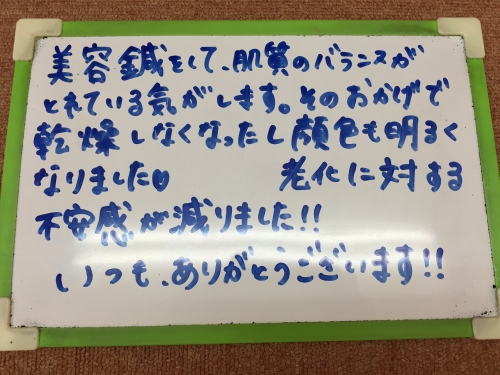 美容鍼をして、肌質のバランスが
とれている気がします。そのおかげで
乾燥しなくなったし顔色も明るく
なりました♥ 老化に対する
不安感が減りました!!
いつも、ありがとうございます!!